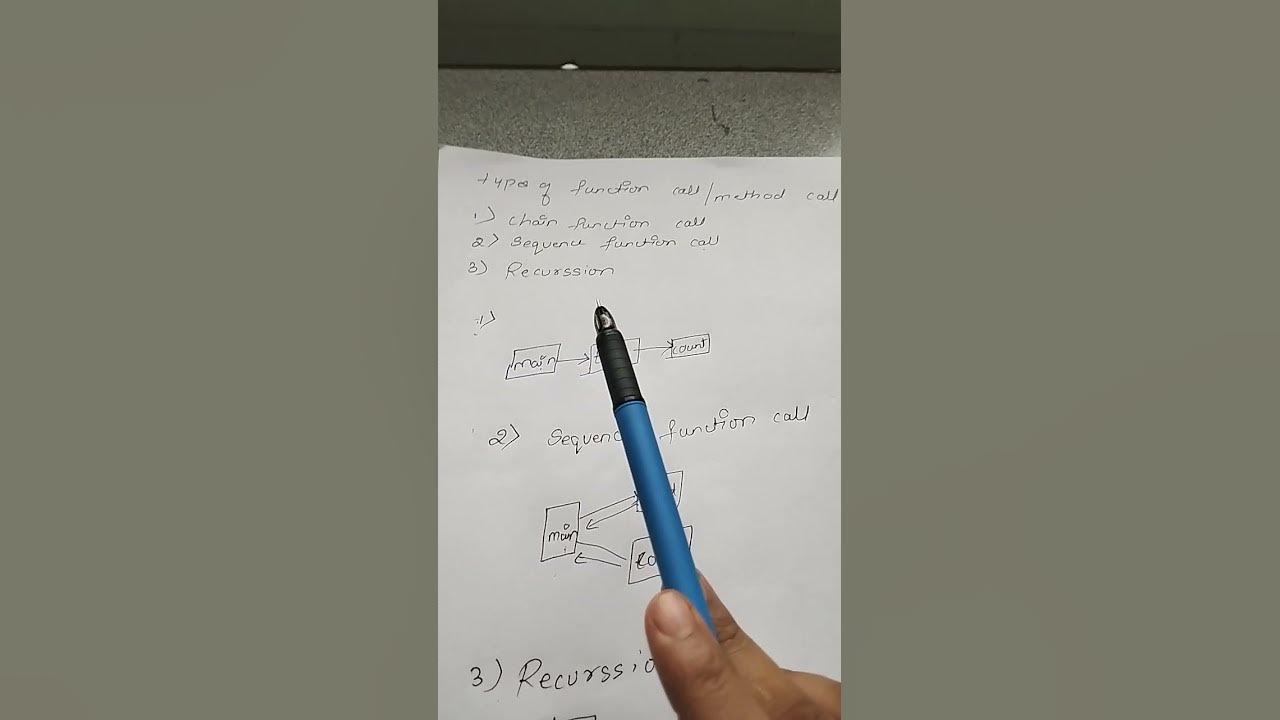 types of function call/method call
1) Chain function call
2) Sequence function call
3) Recurssion
1)
main
count
2) Sequenc function call
main
3) Recurssio